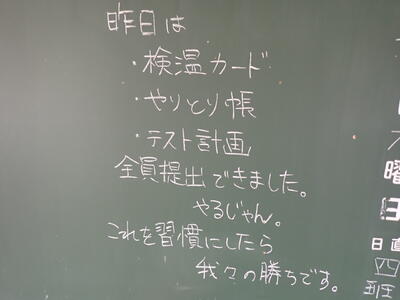 昨日は
・検温カード
・やりとり帳
・テスト計画
全員提出できました。
やるじゃん。
これを習慣にしたら
我々の勝ちです。
曜
日
日直
四
班